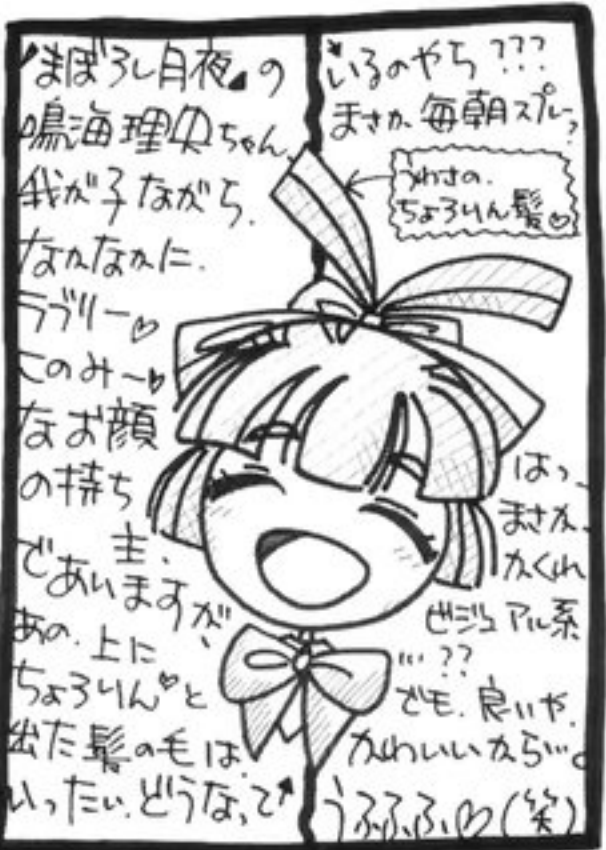 『まぼろし月夜』の
鳴海理央ちゃん、
我が子ながら、
なかなかに、
ラブリー♡
このみ〜♡
なお顔
の持ち
主、
であいますが、
あの、上に
ちょろりん♡と
出た髪の毛は、
いったい、どうなって
いるのやら???
まさか、毎朝スプレー?
うわさの、
ちょろりん髪♡
はっ、
まさか、
かくれ
ビジュアル系
…??
でも、良いや、
かわいいから…。
うふふふ♡(笑)